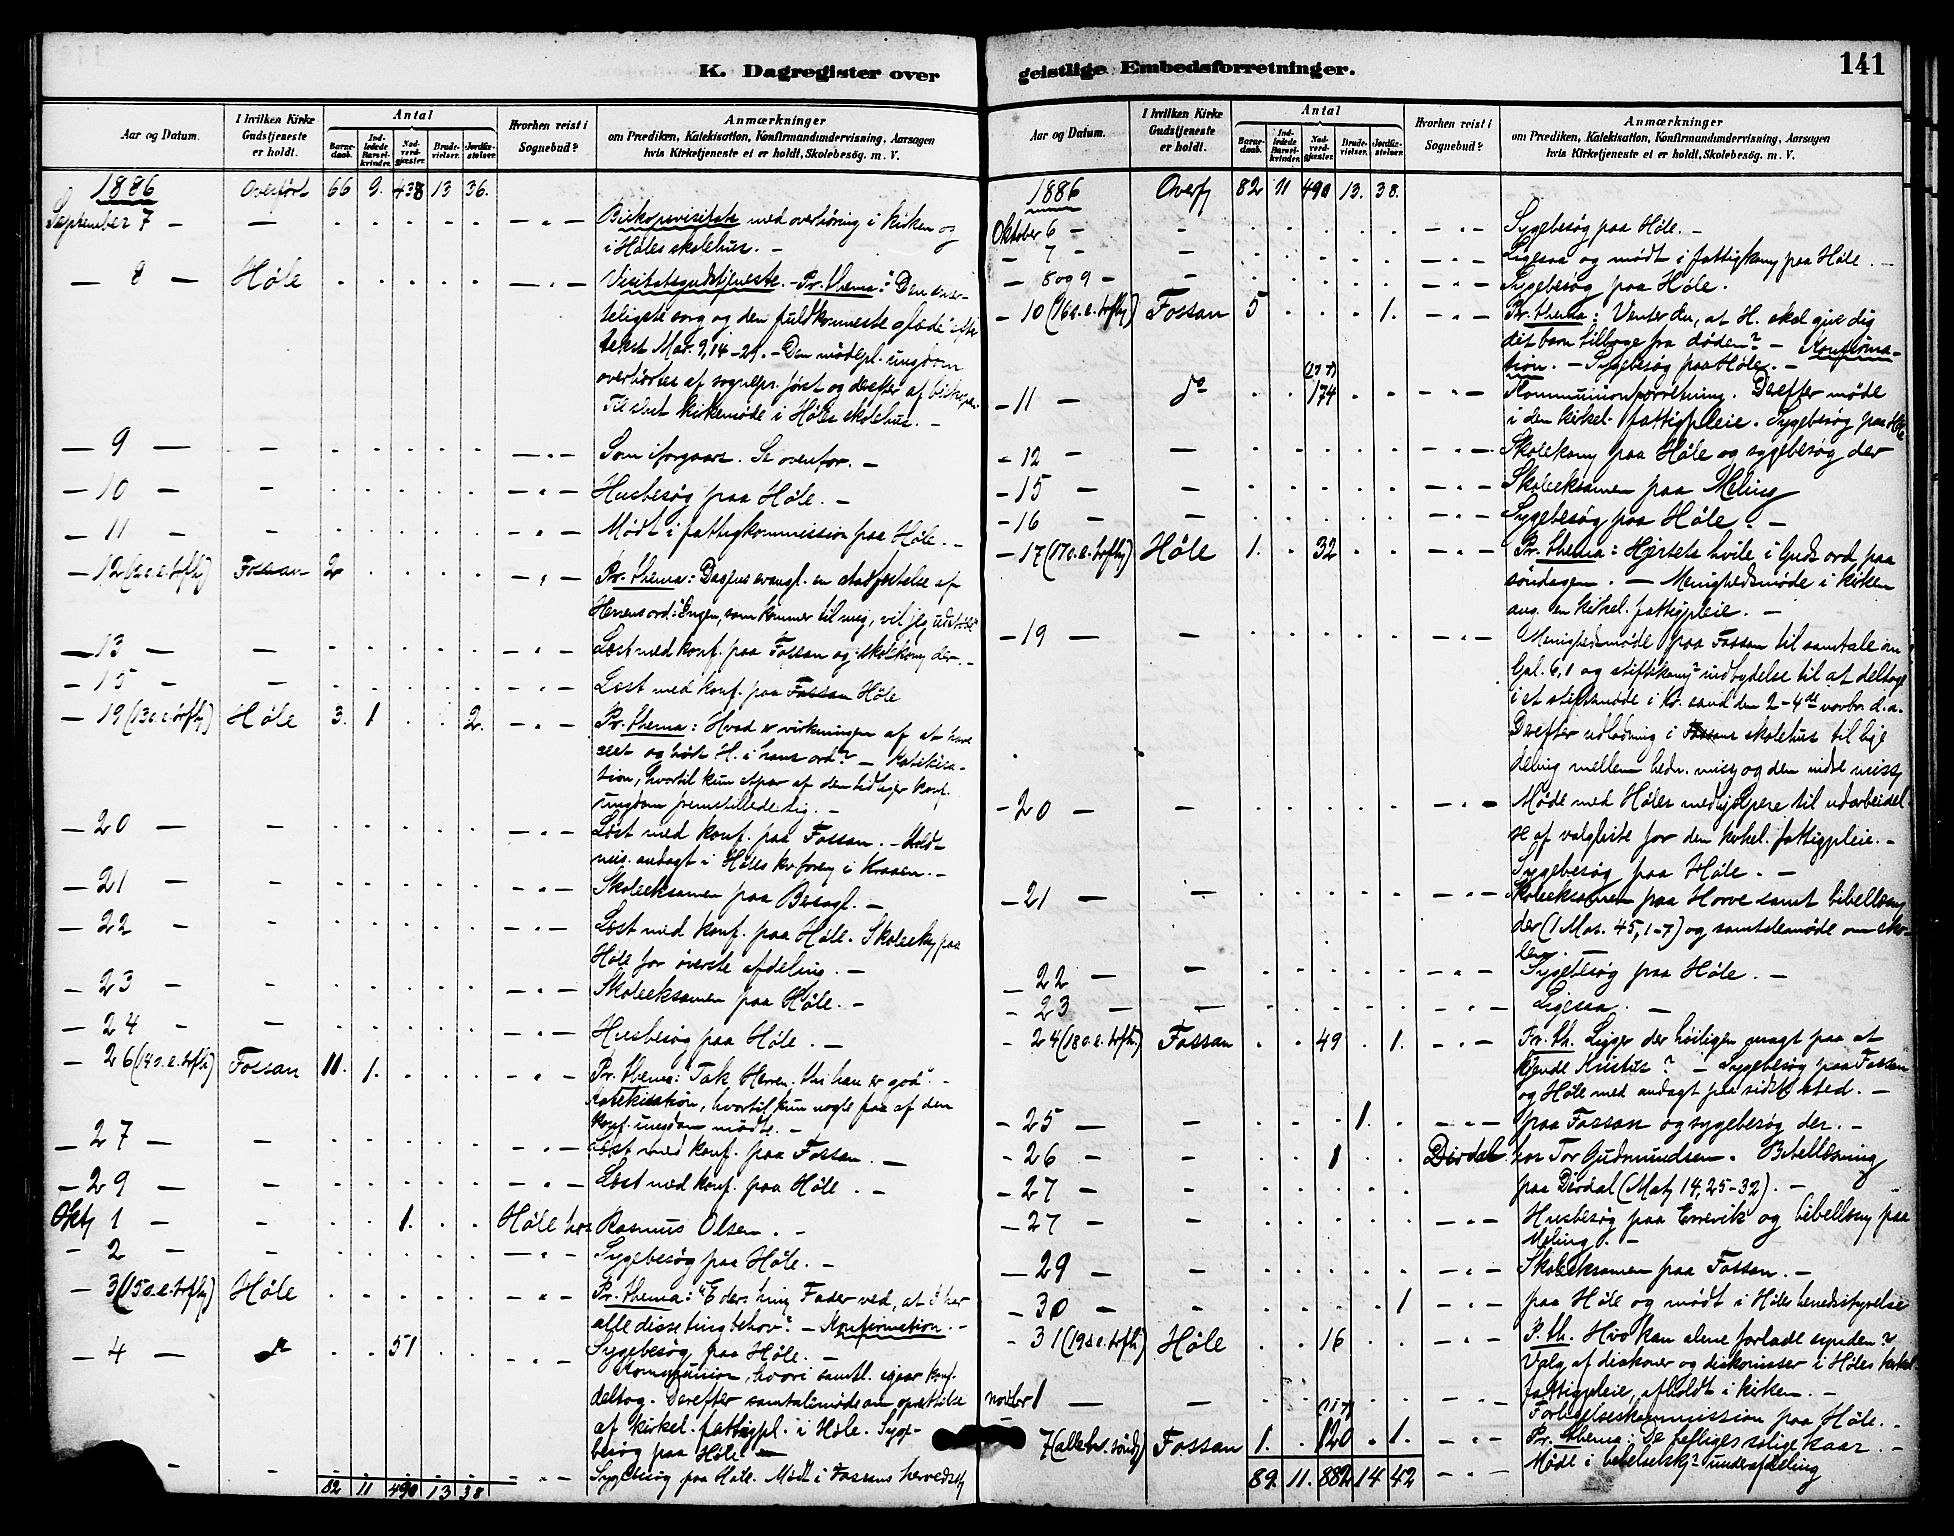 K. Dagregister over
Aar og Datum.
I hvilken Kirke Gudstjeneste er holdt.
Antal
Barne-daab.
Ind-ledede Barsel-kvinder.
Nad-verd-gjester.
Brude-vielser.
Jordfæ-stelser.
Hvorhen reist i Sognebud?
Anmærkninger
om Prædiken, Katekisation, Konfirmandundervisning, Aarsagen
hvis Kirketjeneste ei er holdt, Skolebesøg. m. V.
1886 Overført 66 9. 438 13 36.
September 7 - Biskopsvisitats med overhøring i kirken og
i Høles skolehus. -
- 8 - Høle Visitatsgudstjeneste. - Pr. thema: "Den
veligste sorg og den fuldkomneste glæde"
tekst Mar. 9,14-29. - Den mødepl. ungdom
overhørtes af sognepr. først og derefter af
Til slut kirkemøde i Høles skolehus. -
- 9 - Som iforgaars. Se ovenfor. -
- 10 - Husbesøg paa Høle. -
- 11 - Mødt i fattigkommission paa Høle. -
- 12 (12 s.e. trfh) Fossan 2 Pr. thema: Dagens evangl. en stadfæstelse af
Herrens ord: "Ingen, som kommer til mig, vil jeg udstøde"
- 13 - Læst med konf. paa Fossan og skolekom der. -
- 15 - Læst med konf. paa Fossan Høle
- 19 (13 s.e. trfh) Høle 3. 1 2. Pr. thema: Hvad er virkningen af at have
seet og hørt H. i hans ord? - Katekisa-
tion, hvortil kun etpar af den tidliger konf.
ungdom fremstillede sig. -
- 20 - Læst med konf. paa Fossan. -
mis. andagt i Høles kv.foreng i Kraaen. -
- 21 - Skoleeksamen paa Bersagl. -
- 22 - Læst med konf. paa Høle. Skoleeks paa
Høle for øverste afdeling. -
- 23 - Skoleeksamen paa Høle. -
- 24 - Husbesøg paa Høle. -
- 26 (14 s.e. trfh) Fossan 11. 1. Pr. thema: Tak Herren, thi han er god". -
Katekisation, hvortil kun nogle faa af den
konf. ungdom mødte. -
- 27 - Læst med konf. paa Fossan. -
- 29 - Læst med konf. paa Høle. -
Oktj 1 - 1. Høle hos Rasmus Olsen. -
- 2 - Sygebesøg paa Høle. -
- 3 (15 s.e. trfh) Høle Pr. thema: "Eders him Fader ved, at I har
alle disse ting behov". - Konfirmation. -
Sygebesøg paa Høle. -
- 4 - do 51 Kommunion, hvori samtl. igaar konf.
deltog. Derefter samtalemøde om oprettelse
af kirkel. fattigpl. i Høle. Syge-
besøg paa Høle -
Sygebesøg paa Høle. Mødt i Fossans herredsst
82 11 490 13 38
geistlige Embedsforretninger.
141
Aar og Datum.
I hvilken Kirke Gudstjeneste er holdt.
Antal
Barne-daab.
Ind-ledede Barsel-kvinder.
Nad-verd-gjester.
Brude-vielser.
Jordfæ-stelser.
Hvorhen reist i Sognebud?
Anmærkninger
om Prædiken, Katekisation, Konfirmandundervisning, Aarsagen
hvis Kirketjeneste ei er holdt, Skolebesøg. m. V.
1886 Overf 82 11 490 13. 38.
Oktober 6 - Sygebesøg paa Høle. -
- 7 - Ligesaa og mødt i fattigkomy paa Høle. -
- 8 og 9 - Sygebesøg paa Høle.
- 10 (16 s.e. trfh) Fossan 5 1. Pr. thema: Venter du, at H. skal give dig
dit barn tilbage fra døden? - Konfirma-
tion. - Sygebesøg paa Høle. -
- 11 - do 174 Kommunionforretning. Derefter møde
i den kirkel. fattigpleie. Sygebesøg paa Høle
- 12 - Skolekomy paa Høle og sygebesøg der
- 15 - Skoleeksamen paa Meling
- 16 - Sygebesøg paa Høle. -
- 17 (17 s.e. trfh) Høle 1. 32 Pr. thema: Hjertets hvile i Guds ord, paa
søndagen. - Menighedsmøde i kirken
ang. en kirkel. fattigpleie. -
- 19 - Menighedsmøde paa Fossan til samtale om
Gal. 6,1 og stiftskomy indbydelse til at deltage
i et stiftsmøde i Kr.sand den 2-4de novbr. d.a.
Derefter udlodning i Fossans skolehus til lige
deling mellem hedn. misy og den indre missy
- 20 - Møde med Høles medhjælpere til udarbeidel-
se af valgliste for den kirkel. fattigpleie. -
Sygebesøg paa Høle. -
- 21 - Skoleeksamen paa Horve samt bibellæsng
der (1 Mos. 45,1-7) og samtalemøde om sko-
len. -
- 22 - Sygebesøg paa Høle. -
- 23 - Ligesaa. -
- 24 (18 s.e. trfh.) Fossan 49 1. Pr. th. Ligger der høiligen magt paa at
kjende Kristus? - Sygebesøg paa Fossan
og Høle med andagt paa sidste sted. -
- 25 - 1. paa Fossan og sygebesøg der. -
- 26 - 1 Dirdal hos Tor Gudmundsen. Bibellæsning
- 27 - paa Dirdal (Mat. 14,25-32). -
- 27 - Husbesøg paa Ennevik og bibellæsng paa
Meling. -
- 29 - Skoleeksamen paa Fossan. -
- 30 - 1 paa Høle og mødt i Høles herredsstyrelse
- 31 (19 s.e. trfh.) Høle 16 P. th. Hvo kan alene forlade synden?
Valg af diakoner og diakonisser i Høles kirkel.
fattigpleie, afholdt i kirken. -
novbr 1 - Forligelseskommission paa Høle. -
- 7 (alle hv. sønd) Fossan 1. 120 1. Pr. thema: De helliges salige kaar. -
Møde i bibelselskj underafdeling
89. 11. 882 14 42